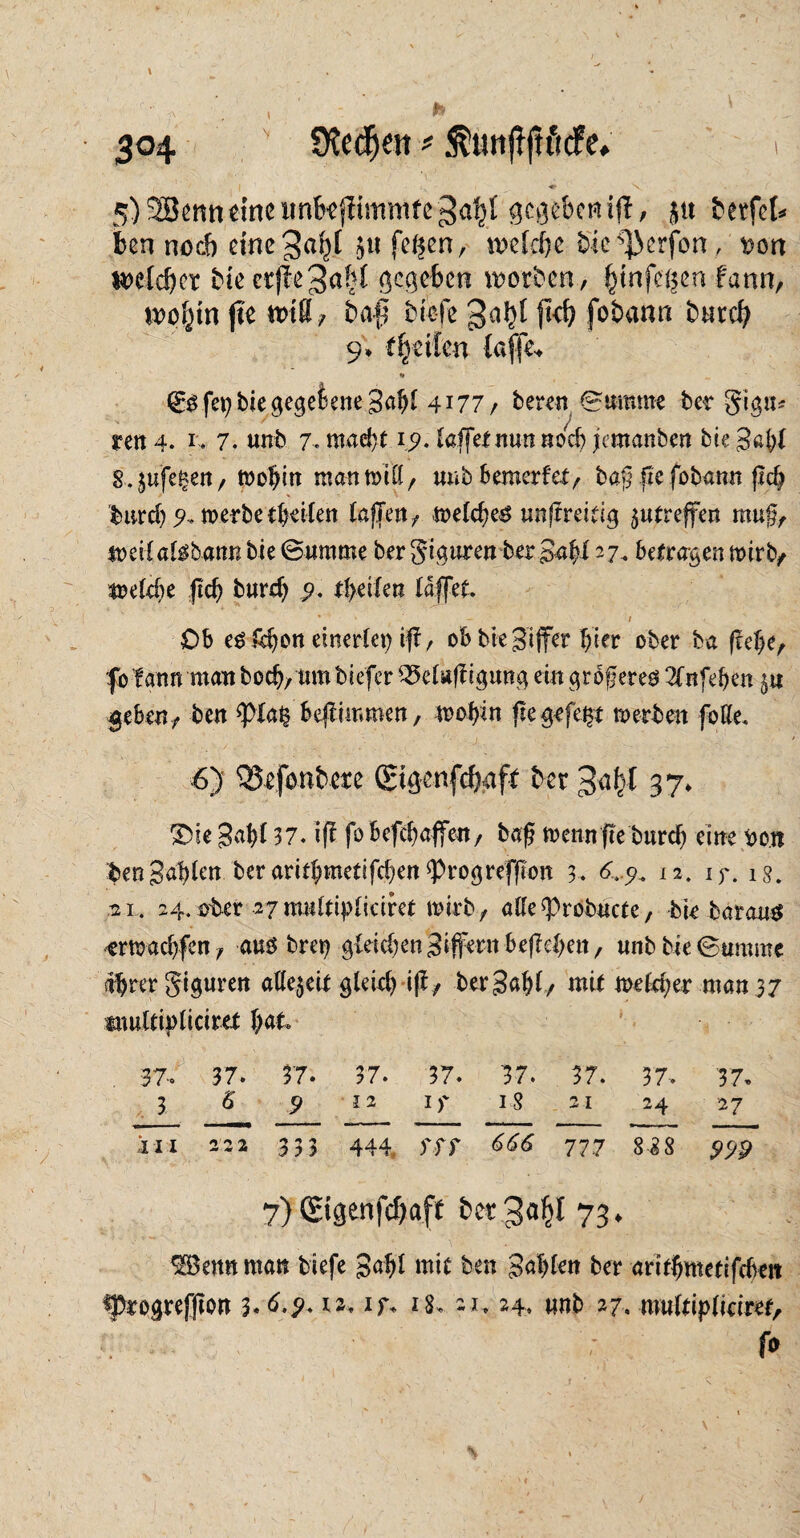 304 Rechen - Kunststücke.
5) Wenn eine unbestimmte Zahl gegeben ist, zu dersel-
ben noch eine Zahl zu setzen, welche die Person, von
welcher die erste Zahl gegeben worden, hinsetzen kann,
wohin sie will, daß diese Zahl sich sodann durch
9. theilen lasse.
Es sey die gegebene Zahl 4177, deren Summe der Figu-
ren 4. 1. 7. und 7. macht 19. lasset nun noch jemanden die Zahl
8. zusetzen, wohin man will, und bemerket, daß sie sodann sich
durch 9. werde theilen lassen, welches unstreitig zutreffen muß,
weil alsdann die Summe der Figuren der Zahl 27. betragen wird,
welche sich durch 9. theilen lässet.
Ob es schon einerley ist, ob die Ziffer hier oder da stehe,
so kann man doch, um dieser Belustigung ein größeres Ansehen zu
geben, den Platz bestimmen, wohin sie gesetzt werden solle.
6) Besondere Eigenschaft der Zahl 37.
Die Zahl 37. ist so beschaffen, daß wenn sie durch eine von
den Zahlen der arithmetischen Progression 3. 6. 9. 12. 15. 18.
21. 24. oder 27 multipliciret wird, alle Producte, die daraus
erwachsen, aus drey gleichen Ziffern bestehen, und die Summe
ihrer Figuren allezeit gleich ist, der Zahl, mit welcher man 37
multipliciret hat.
37. 37. 37. 37. 37. 37. 37. 37. 37.
3 6 9 12 15 18 21 24 27
111 222 333 444 555 666 777 888 999
7) Eigenschaft der Zahl 73.
Wenn man diese Zahl mit den Zahlen der arithmetischen
Progression 3. 6. 9. 12. 15. 18. 21. 24. und 27. multipliciret,
so